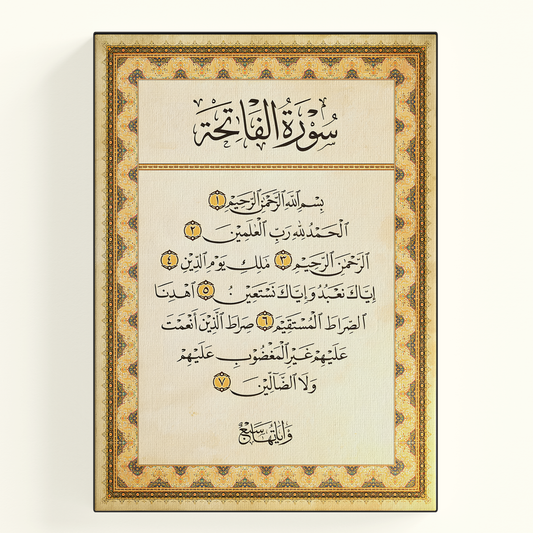 سُوْرَةُ الْفَاتِحَة
بِسْمِ ٱللَّهِ ٱلرَّحْمَٰنِ ٱلرَّحِيْمِ ١
ٱلْحَمْدُ لِلَّهِ رَبِّ ٱلْعَٰلَمِيْنَ ٢
ٱلرَّحْمَٰنِ ٱلرَّحِيْمِ ٣ مَٰلِكِ يَوْمِ ٱلدِّيْنِ ٤
إِيَّاكَ نَعْبُدُ وَإِيَّاكَ نَسْتَعِيْنُ ٥ ٱهْدِنَا
ٱلصِّرَاطَ ٱلْمُسْتَقِيْمَ ٦ صِرَاطَ ٱلَّذِيْنَ أَنْعَمْتَ
عَلَيْهِمْ غَيْرِ ٱلْمَغْضُوْبِ عَلَيْهِمْ
وَلَا ٱلضَّآلِّيْنَ ٧
وَآيَاتُهَا سَبْعٌ